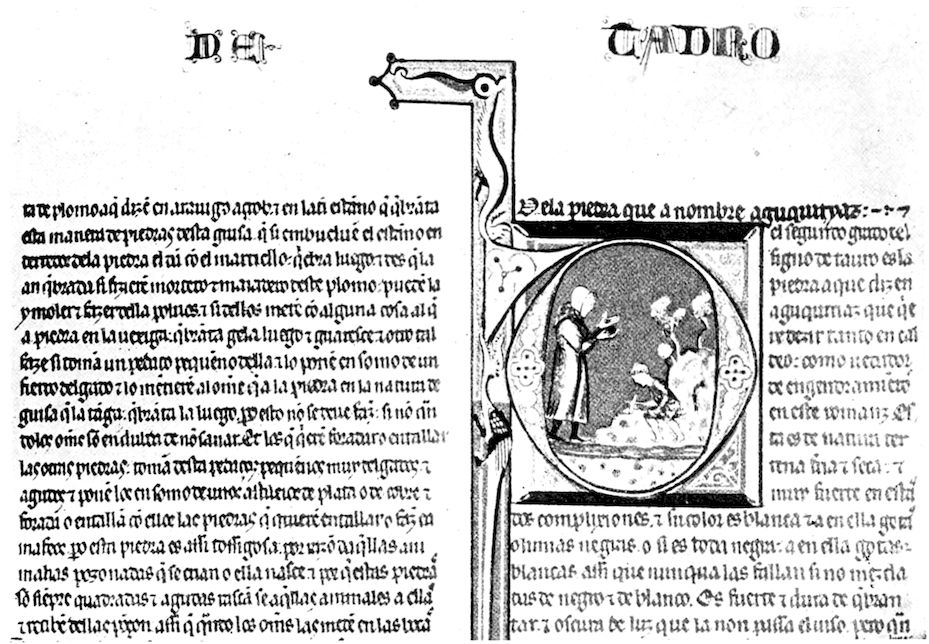 DE TAURO
ta de plomo a q̃ dizẽ en arauigo
esta manera de piedras desta guisa. q̃ si embueluẽ el estanno en
derredor dela piedra el dã cõ el martiello. q̃bra luego. ⁊ des q̃ la
an q̃brada si fizierẽ mortero ⁊ maiadero deste plomo. puede la
⁊ moler ⁊ fazer della poluos. ⁊ si dellos metẽ cõ alguna cosa al q̃
a piedra en la uexiga. q̃brãta gela luego ⁊ guaresce. ⁊ otro tal
faze si tomã un pedaço pequenno della. ⁊ lo ponẽ en somo de un
fierro delgado. ⁊ lo meten al omẽ q̃ a la piedra en la natura de
guisa q̃ la tãga. q̃brãta la luego. por esto nõ se deue faz. si nõ
omẽ de nõ sanar. Et los q̃ q̃rẽ foradar o entallar
las otras piedras. tomã desta pedaços pequennos muy delgados. ⁊
agudos ⁊ ponẽ los en somo de unos de plata o de cobre ⁊
foradã o entallã cõ ellos las piedras q̃ quierẽ entallar o
pero esta piedra es assi tossigosa. por razõ daq̃llas ani
malias pozonadas q̃ se crian o ella nasce. ⁊ por q̃ estas piedras
sõ siẽpre quadradas ⁊ agudas se aq̃llas animales a ella
⁊ recibe dellas poçon. assi q̃ quãdo los omẽs las meten en las bocas
Dela piedra que a nombre aguquiriaz.
el segundo grado del
signo de tauro es la
piedra a que dizen
aguquiriaz. que q̃e
re dezir tanto en cal
deo. como uedador
de engendramiento
en este romanz. Es
ta es de natura ter
rena fria ⁊ seca. ⁊
muy fuerte en estas
dos complixiones. ⁊ su color es blanca ⁊ a en ella gotas
negras. o si es toda negra. a en ella gotas
blancas. assi que nunqua las fallan si no mezcla
das de negro ⁊ de blanco. Es fuerte ⁊ dura de q̃bran
tar. ⁊ oscura de luz que la non passa el uiso. pero